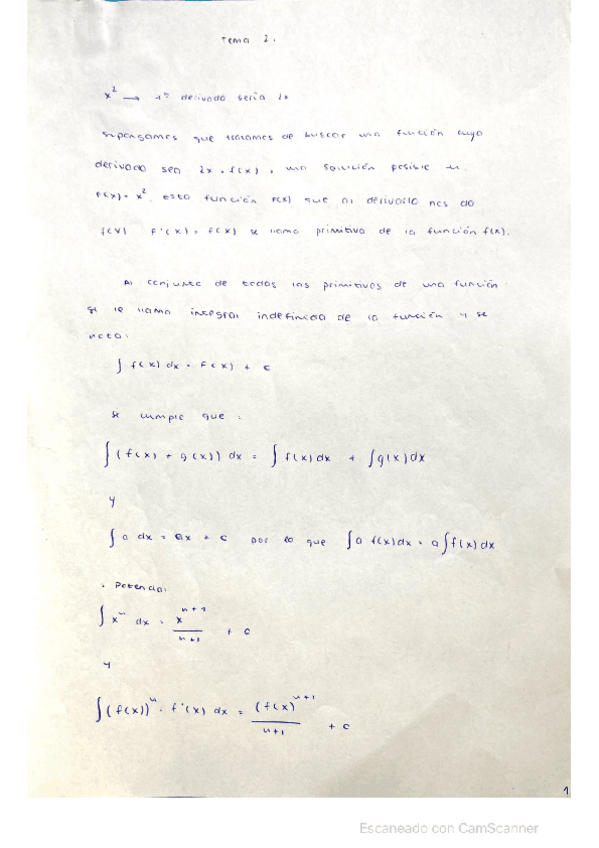 Tema 2.
x² → 1ª derivada seria 2x
Supongamos que tratamos de buscar una función cuya
derivada sea 2x = f(x), una solución posible
F(x) = x². esta función F(x) que al derivarla nos da
f(x) F'(x) = f(x) se llama primitiva de la función f(x).
Al conjunto de todas las primitivas de una función
se le llama integral indefinida de la función y se
nota:
∫ f(x) dx = F(x) + c
Se cumple que:
∫ (f(x) + g(x)) dx = ∫ f(x) dx + ∫ g(x) dx
y
∫ a dx = ax + c por lo que ∫ a f(x) dx = a ∫ f(x) dx
· Potencia:
∫ xⁿ dx = xⁿ⁺¹/n+1 + c
y
∫ (f(x))ⁿ · f'(x) dx = (f(x)ⁿ⁺¹/n+1 + c
1
Escaneado con CamScanner